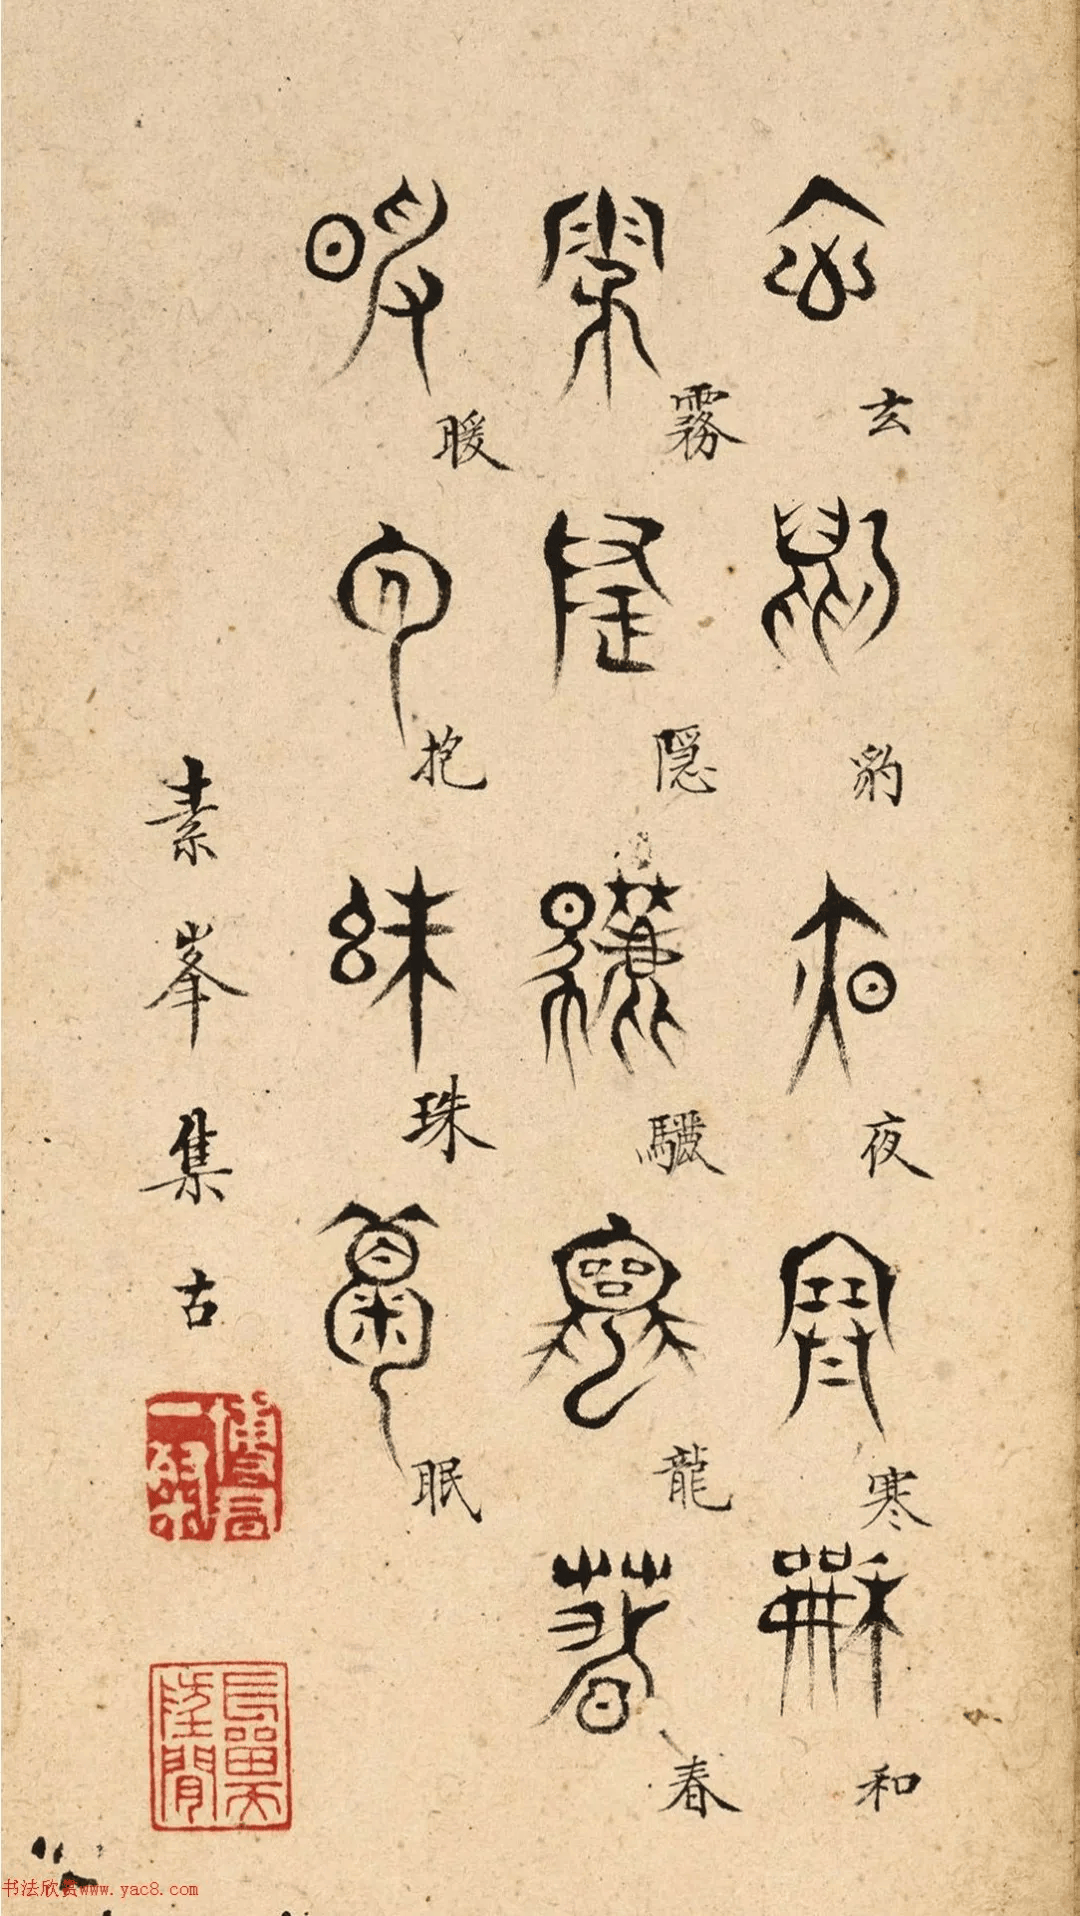 玄豹夜寒和
霧隱驪龍春
暖抱珠眠
素峯集古
书法欣赏www.yac8.com